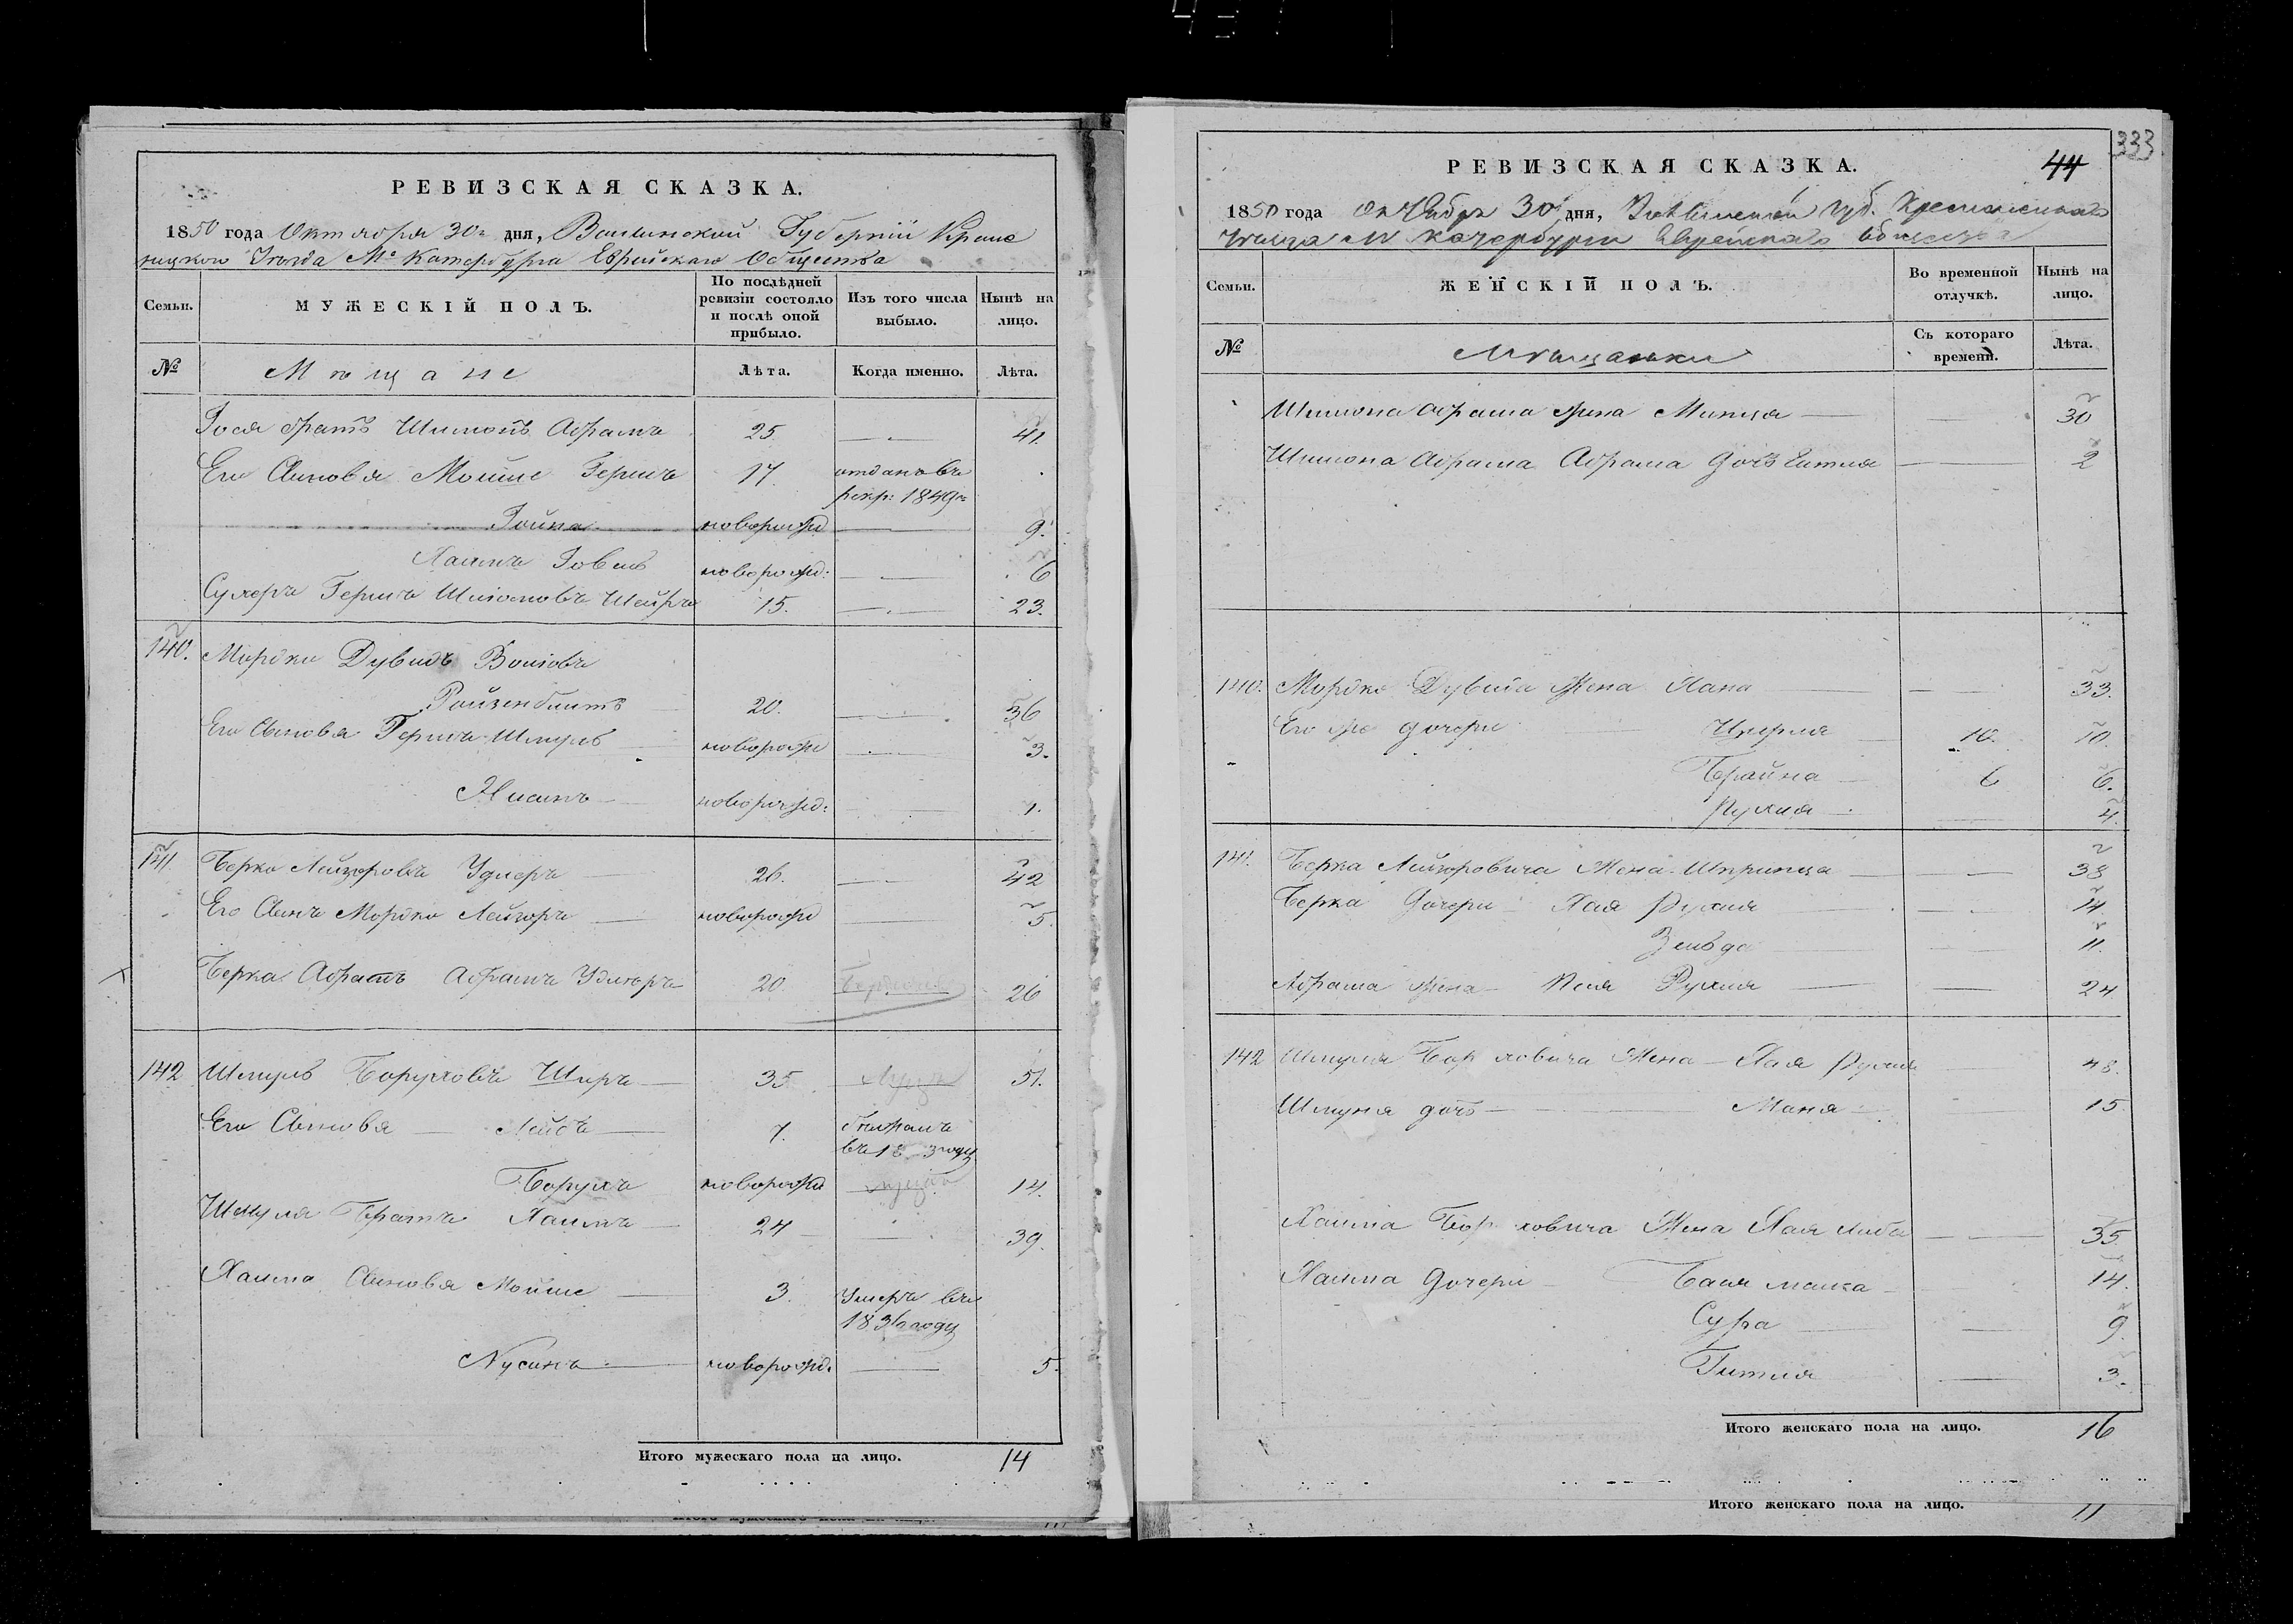 РЕВИЗСКАЯ СКАЗКА.
1850 года Октября 30го дня, Волынской Губернiи Креме
нецкого Уезда Мс Катербурга Еврейскаго Общества
Семьи.
МУЖЕСКIЙ ПОЛЪ.
По послѣдней ревизiи состояло и послѣ оной прибыло.
Изъ того числа выбыло.
Нынѣ на лицо.
№
Мѣщане
Лѣта.
Когда именно.
Лѣта.
братъ Шимонъ Абрамъ 25. 41.
Его Сыновья Мойше Гершъ 17. отданъ въ
рекр: 1849г.
новорожд 9.
Хаимъ новорожд: 6
Гершъ 15. 23.
140. Мордко Дувидъ
Ройзенблитъ 20. 36
Его Сыновья Гершъ Шмуль новорожд 3.
Нисинъ новорожд: 1.
141. Берко Лейзоровъ 26. 42
Его Сынъ Мордко Лейзоръ новорожд 5.
Берка Абрамъ 20. 26
142 Шмуль Боруховъ Ширъ 35 51.
Его Сыновья Лейбъ 7.
Борухъ новорожд 14.
Шмуля Братъ Хаимъ 24 39.
Хаима Сыновья Мойше 3. Умеръ въ
году
Нусинъ новорожд. 5.
Итого мужескаго пола на лицо. 14
333
РЕВИЗСКАЯ СКАЗКА. 44
1850 года Октября 30 дня, Волынской Губ. Кременецкаго
уѣзда М Катербурга Еврейскаго Общества
Семьи.
ЖЕНСКIЙ ПОЛЪ.
Во временной отлучкѣ.
Нынѣ на лицо.
№
Мѣщанки
Съ котораго времени.
Лѣта.
Шимона Абрама жена Минця 30
Шимона Абрама дочь 2
140. Мордко Дувида Жена Хана 33.
Его же дочери 10. 10.
Брайна 6 6.
Рухля 4.
141. Берка Лейзоровича Жена Шпринца 38
Берка Дочери Хая Рухля 14
Зельда 11.
Абрама жена Рухля 24
142 Шмуля Жена Хая Рухля 48.
Шмуля дочь Маня 15
Хаима Жена Хая Либа 35
Хаима Дочери Бася 14.
Сура 9.
Гитля 3.
Итого женскаго пола на лицо. 16
Итого женскаго пола на лицо. 11